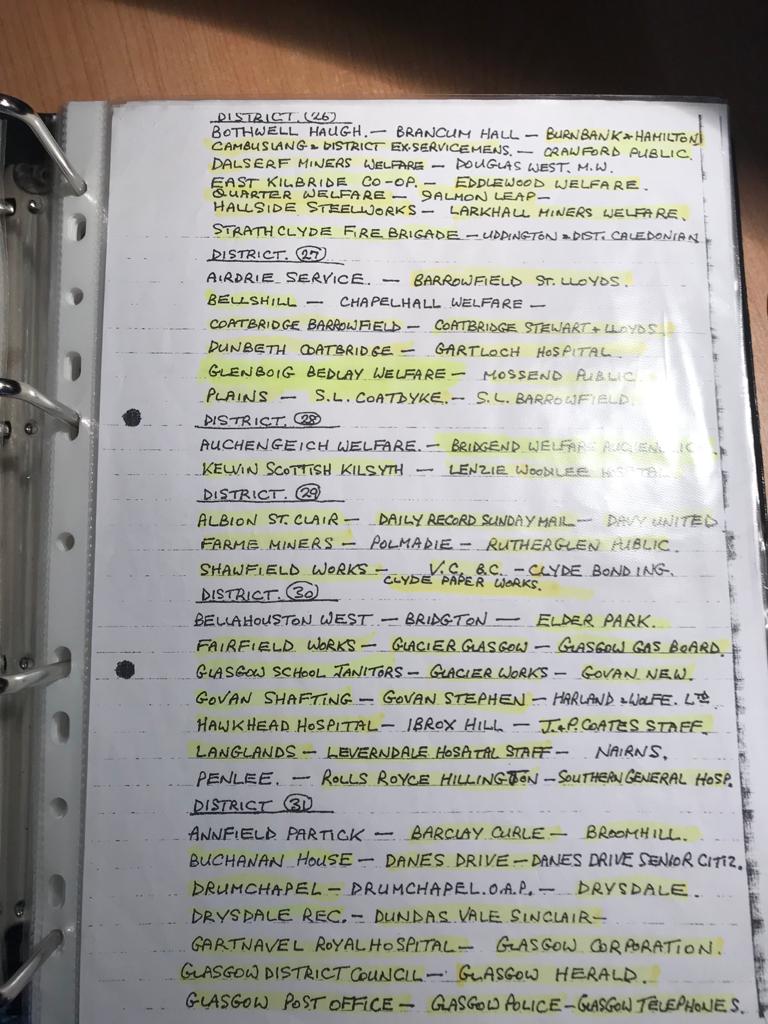 DISTRICT. (26)
BOTHWELL HAUGH. — BRANCUM HALL — BURNBANK & HAMILTON
CAMBUSLANG & DISTRICT EX-SERVICEMENS. — CRAWFORD PUBLIC.
DALSERF MINERS WELFARE — DOUGLAS WEST. M.W.
EAST KILBRIDE CO-OP. — EDDLEWOOD WELFARE.
QUARTER WELFARE — SALMON LEAP —
HALLSIDE STEELWORKS — LARKHALL MINERS WELFARE.
STRATHCLYDE FIRE BRIGADE — UDDINGTON & DIST. CALEDONIAN
DISTRICT. (27)
AIRDRIE SERVICE. — BARROWFIELD ST. LLOYDS.
BELLSHILL — CHAPELHALL WELFARE —
COATBRIDGE BARROWFIELD — COATBRIDGE STEWART & LLOYDS.
DUNBETH COATBRIDGE — GARTLOCH HOSPITAL.
GLENBOIG BEDLAY WELFARE — MOSSEND PUBLIC.
PLAINS — S.L. COATDYKE. — S.L. BARROWFIELD.
DISTRICT. (28)
AUCHENGEICH WELFARE. — BRIDGEND WELFARE
KELVIN SCOTTISH KILSYTH — LENZIE WOODILEE HOSPITAL
DISTRICT. (29)
ALBION ST. CLAIR — DAILY RECORD SUNDAY MAIL — DAVY UNITED
FARME MINERS — POLMADIE — RUTHERGLEN PUBLIC.
SHAWFIELD WORKS — V.C. B.C. — CLYDE BONDING.
CLYDE PAPER WORKS.
DISTRICT. (30)
BELLAHOUSTON WEST — BRIDGTON — ELDER PARK.
FAIRFIELD WORKS — GLACIER GLASGOW — GLASGOW GAS BOARD.
GLASGOW SCHOOL JANITORS — GLACIER WORKS — GOVAN NEW.
GOVAN SHAFTING — GOVAN STEPHEN — HARLAND & WOLFE. LTD.
HAWKHEAD HOSPITAL — IBROX HILL — J. & P. COATES STAFF.
LANGLANDS — LEVERNDALE HOSPITAL STAFF — NAIRNS.
PENLEE. — ROLLS ROYCE HILLINGTON — SOUTHERN GENERAL HOSP.
DISTRICT (31)
ANNFIELD PARTICK — BARCLAY CURLE — BROOMHILL.
BUCHANAN HOUSE — DANES DRIVE — DANES DRIVE SENIOR CITIZ.
DRUMCHAPEL — DRUMCHAPEL. O.A.P. — DRYSDALE.
DRYSDALE REC. — DUNDAS VALE SINCLAIR —
GARTNAVEL ROYAL HOSPITAL — GLASGOW CORPORATION.
GLASGOW DISTRICT COUNCIL — GLASGOW HERALD.
GLASGOW POST OFFICE — GLASGOW POLICE — GLASGOW TELEPHONES.